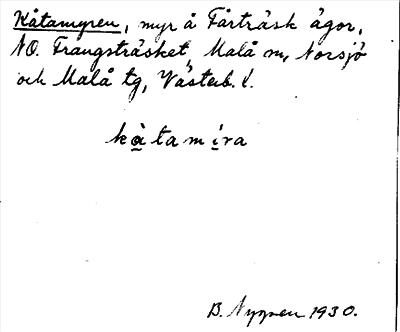 Kåtamyren, myr å Fårträsk ägor,
NO. Frangsträsket, Malå sn, Norsjö
och Malå tg, Västerb. l.
kåtamira
B. Nygren 1930.